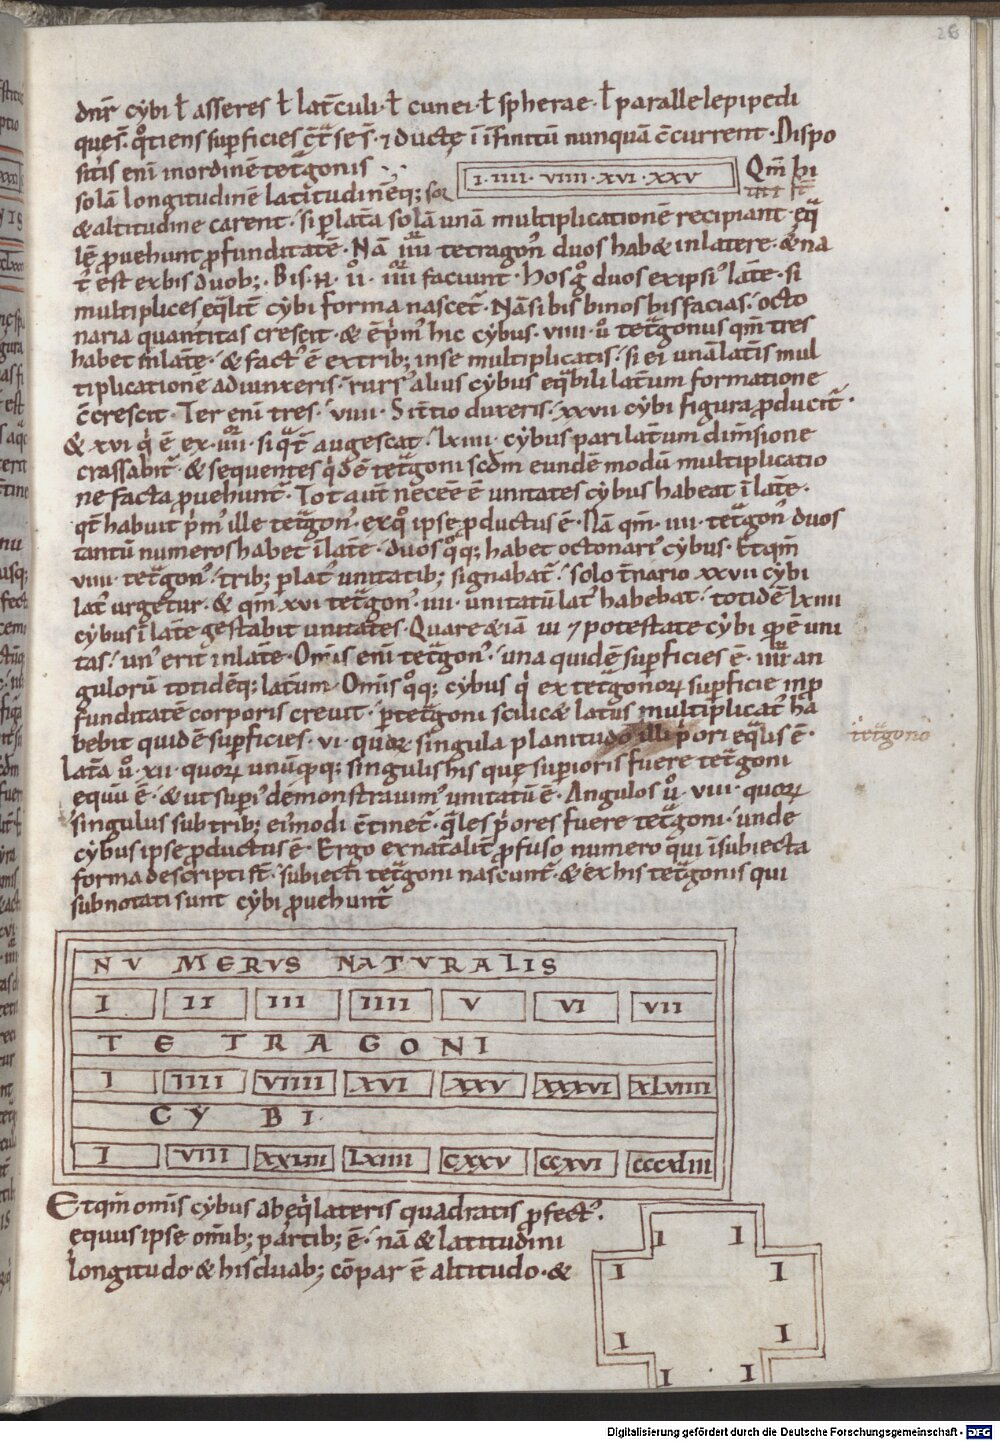 26
dn̄r cybi ł asseres ł lat̄culi· ł cunei· ł spherae· ł parallelepipedi
ques̄· q̊tiens sup̄ficies c̄t̄ se s̄· ⁊ ductę ī īfinitū nunquā c̄current· Dispo
sitis enī in ordinē tet̄gonis
I· IIII· VIIII· XVI· XXV
Qm̄ hi
solā longitudinē latitudinēq; sor
& altitudine carent· si p lata solā unā multiplicationē recipiant· eq̄
lē puehunt pfunditatē· Nā iiii tetragon̄ duos hab& in latere· & na
t̄ est ex bis duob;· Bis· n̄· ii· iiii faciunt· hos g̊ duos ex ipsi lat̄e· si
multiplices eq̄lit̄ cybi forma nascet̄· Nā si bis binos bis facias· octo
naria quantitas crescit· & ē p̄m hic cybus· viiii· u̅ tet̄gonus qm̄ tres
habet in lat̄e· & fact ē ex trib; in se multiplicatis· si ei unā lat̄is mul
tiplicatione adiunxeris· rurs alius cybus eq̄bili lat̄um formatione
c̄crescit· Ter enī tres· viiii· S it̄tio duxeris· xxvii cybi figura pducit̄·
& xvi q̇ ē ex· iiii· si q̄t̄ augescat· lxiiii· cybus pari lat̄um dim̄sione
crassabit̄· & sequentes q̇dē tet̄goni scdm̄ eundē modū multiplicatio
ne facta puehunt̄· Tot aut̄ necēē ē unitates cybus habeat ī lat̄e·
qt̄ habuit p̄m ille tet̄gon· ex q̊ ipse pductus ē· Nā qm̄· iiii· tet̄gon duos
tantū numeros habet ī lat̄e· duos q̊q; habet octonari cybus· Et qm̄
viiii· tet̄gon· trib; p lat unitatib; signabat̄· solo t̄nario xxvii cybi
lat urgetur· & qm̄ xvi tet̄gon· iiii· unitatū lat habebat· totidē lxiiii
cybus ī lat̄e gestabit unitates· Quare & iā ui ⁊ potestate cybi q̇ ē uni
tas· un erit in lat̄e· Om̄is enī tet̄gon· una quidē sup̄ficies ē· iiii an
gulorū totidēq; lat̄um· Om̄is q̊q; cybus q̇ ex tet̄gonorꝝ sup̄ficie in p
funditatē corporis crevit· p tet̄goni scilic& latus multiplicat ha
bebit quidē sup̄ficies· vi· quorꝝ singula planitudo illi ṗori eq̄lis ē·
tet̄gono
Lat̄a u̅· xii· quorꝝ unūq̇q; singulis his que supioris fuere tet̄goni
equū ē· & ut supi demonstravim unitatū ē· Angulos u̅· viii· quorꝝ
singulus sub trib; ei modi c̄tinet̄· q̄les ṗores fuere tet̄goni· unde
cybus ipse pductus ē· Ergo ex nat̄alit̄ pfuso numero qui ī subiecta
forma descripti st̄· subiecti tet̄goni nascunt̄· & ex his tet̄gonis qui
subnotati sunt cybi puehunt̄
NVMERVS NATVRALIS
I II III IIII V VI VII
TETRAGONI
I IIII VIIII XVI XXV XXXVI XLVIIII
CYBI·
I VIII XXVII LXIIII CXXV CCXVI CCCXLIII
Et qm̄ om̄is cybus ab eq̇lateris quadratis pfect·
equus ipse om̄ib; partib; ē· nā & latitudini
longitudo· & his duab; cōpar ē altitudo· &
I I
I I
I I
I I
Digitalisierung gefördert durch die Deutsche Forschungsgemeinschaft - DFG